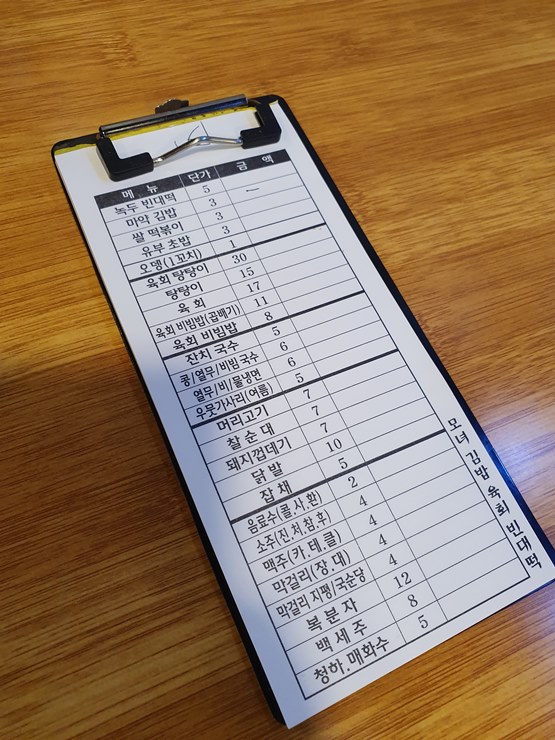 메 뉴 단가 금 액
녹두 빈대떡 5 一
마약 김밥 3
쌀 떡볶이 3
유부 초밥 3
오뎅(1꼬치) 1
육회 탕탕이 30
탕탕이 15
육 회 17
육회 비빔밥(곱배기) 11
육회 비빔밥 8
잔치 국수 5
콩/열무/비빔 국수 6
열무/비/물냉면 6
우뭇가사리(여름) 5
머리고기 7
찰 순 대 7
돼지껍데기 7
닭 발 10
잡 채 5
음료수(콜,사,환) 2
소주(진,처,참,후) 4
맥주(카,테,클) 4
막걸리(장,대) 4
막걸리 지평/국순당 4
복 분 자 12
백 세 주 8
청하.매화수 5
모녀 김밥 육회 빈대떡